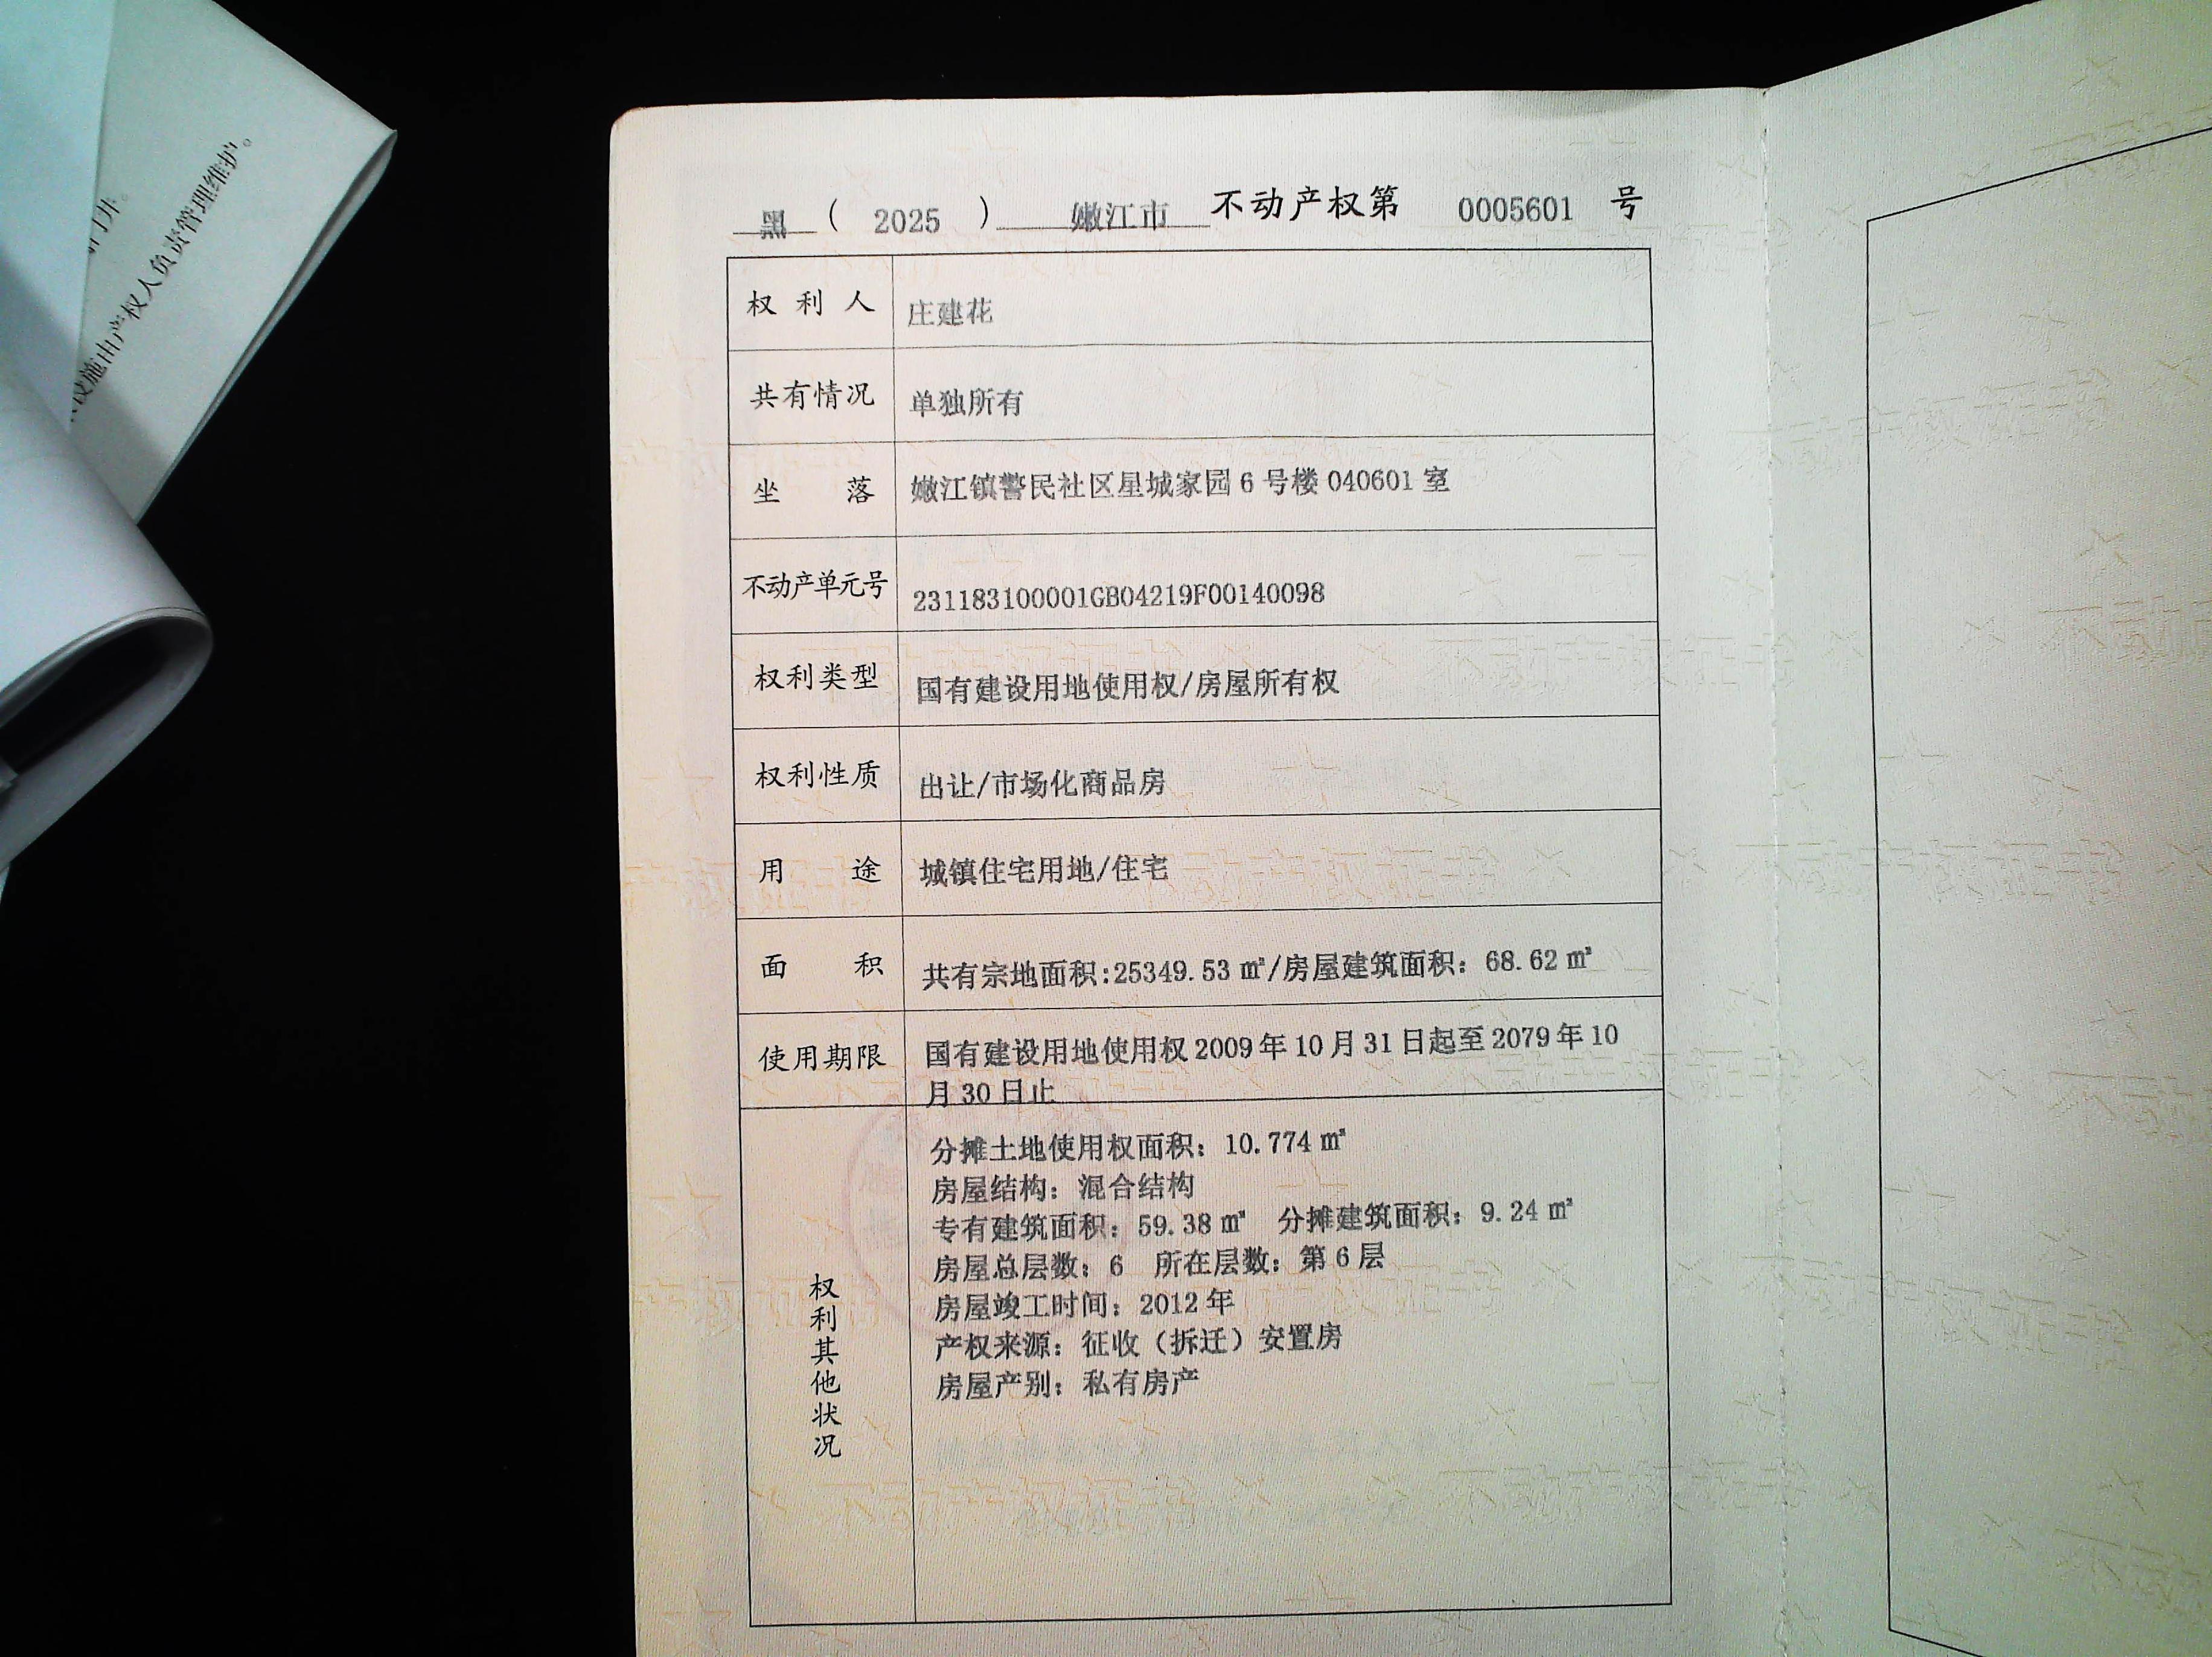 黑 ( 2025 ) 嫩江市 不动产权第 0005601 号
权利人 庄建花
共有情况 单独所有
坐落 嫩江镇警民社区星城家园 6 号楼 040601 室
不动产单元号 231183100001GB04219F00140098
权利类型 国有建设用地使用权/房屋所有权
权利性质 出让/市场化商品房
用途 城镇住宅用地/住宅
面积 共有宗地面积:25349.53 ㎡/房屋建筑面积：68.62 ㎡
使用期限 国有建设用地使用权 2009 年 10 月 31 日起至 2079 年 10
月 30 日止
权利其他状况
分摊土地使用权面积：10.774 ㎡
房屋结构：混合结构
专有建筑面积：59.38 ㎡ 分摊建筑面积：9.24 ㎡
房屋总层数：6 所在层数：第 6 层
房屋竣工时间：2012 年
产权来源：征收（拆迁）安置房
房屋产别：私有房产
设施由产权人负责管理维护。